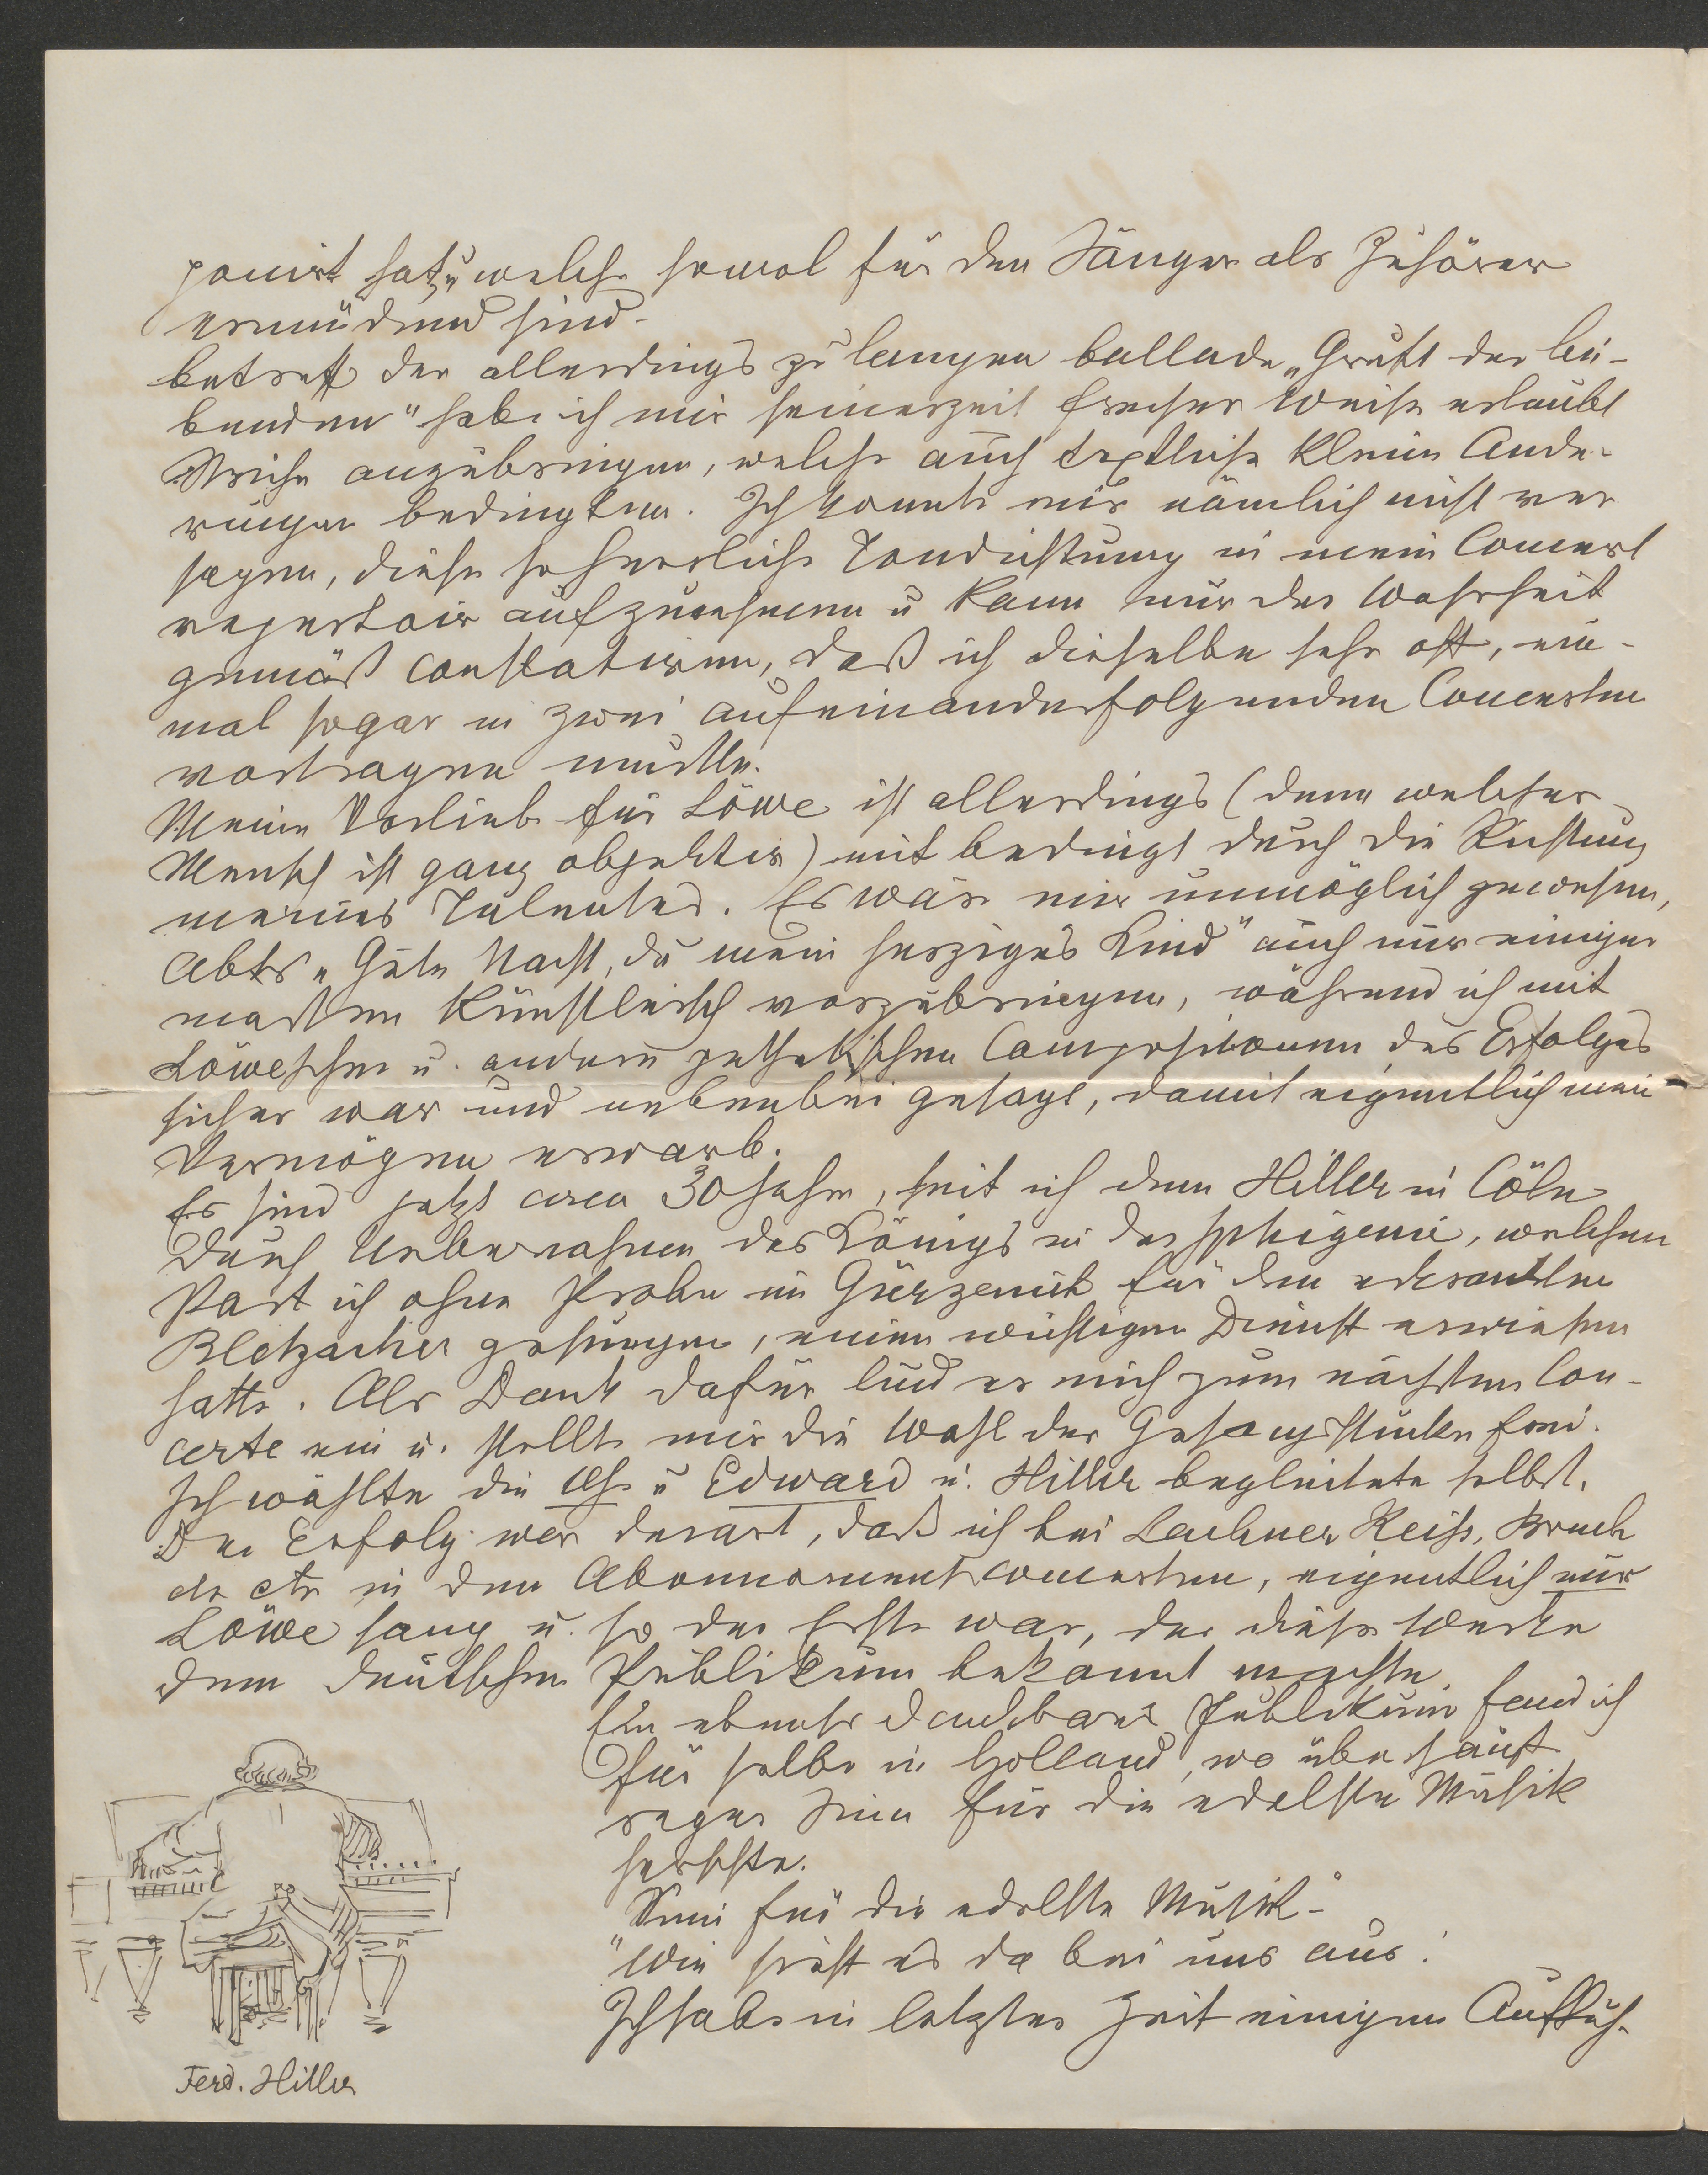 ponirt hat, u welche sowol für den Sänger als Zuhörer
ermüdend sind.
betreff der allerdings zu langen ballade „Gruft der Lie-
benden" habe ich mir seinerzeit frecher Weise erlaubt
Striche anzubringen, welche auch textliche kleine Ande-
rungen bedingten. Ich konnte mir nämlich nicht ver
sagen, diese so herrliche Tondichtung in mein Concert
repertoir aufzunehmen u kann nur der Wahrheit
gemäß constatiren, daß ich dieselbe sehr oft, ein-
mal sogar in zwei aufeinanderfolgenden Concerten
vortragen mußte.
Meine Vorliebe für Löwe ist allerdings (denn welcher
Mensch ist ganz objektiv) mit bedingt durch die Richtung
meines Talentes. Es wäre mir unmöglich gewesen,
Abts „Gute Nacht, du mein herziges Kind" auch nur einiger
maßen künstlerisch vorzubringen, während ich mit
Löweschen u. andern pathetischen Compositionen des Erfolges
sicher war und nebenbei gesagt, damit eigentlich mein
Vermögen erwarb.
Es sind jetzt circa 30 Jahre, seit ich dem Hiller in Cöln
durch Uebernahme des Königs in der Iphigenie, welchen
Part ich ohne Probe im Gürzenich für den erkrankten
Bletzacher gesungen, einen wichtigen Dienst erwiesen
hatte. Als Dank dafür lud er mich zum nächsten Con-
certe ein u. stellte mir die Wahl der Gesangsstücke frei.
Ich wählte die Uhr u Edward u. Hiller begleitete selbst.
Der Erfolg war derart, daß ich bei Lachner Reiss, Bruch
etc etc in den Abonnementconcerten, eigentlich nur
Löwe sang u. so der Erste war, der diese Werke
dem deutschen Publikum bekannt machte.
Ein ebenso dankbares Publikum fand ich
für selbe in Holland, wo überhaupt
reger Sinn für die edelste Musik
herrschte.
"Sinn für die edelste Musik"-
Wie sieht es da bei uns aus!
Ich habe in letzter Zeit einigen Auffüh-
Ferd. Hiller